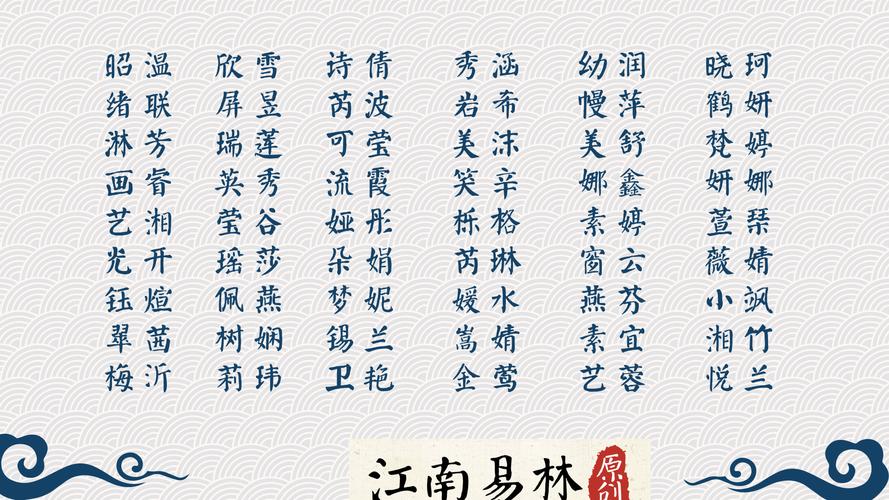 昭温 欣雪 诗倩 秀涵 幼润 晓珂
绪联 屏昱 芮波 岩希 慢萍 鹤妍
淋芳 瑞莲 可莹 美沫 美舒 梵婷
画睿 英秀 流霞 笑辛 娜鑫 妍娜
艺湘 莹谷 娅彤 栎格 素婷 萱琹
光开 瑶莎 朵娟 芮琳 窗云 薇婧
钰煊 佩燕 梦妮 媛水 燕芬 小飒
翠茜 树娴 锡兰 嵩婧 素宜 湘竹
梅沂 莉玮 卫艳 金莺 艺蓉 悦兰
江南易林
原创